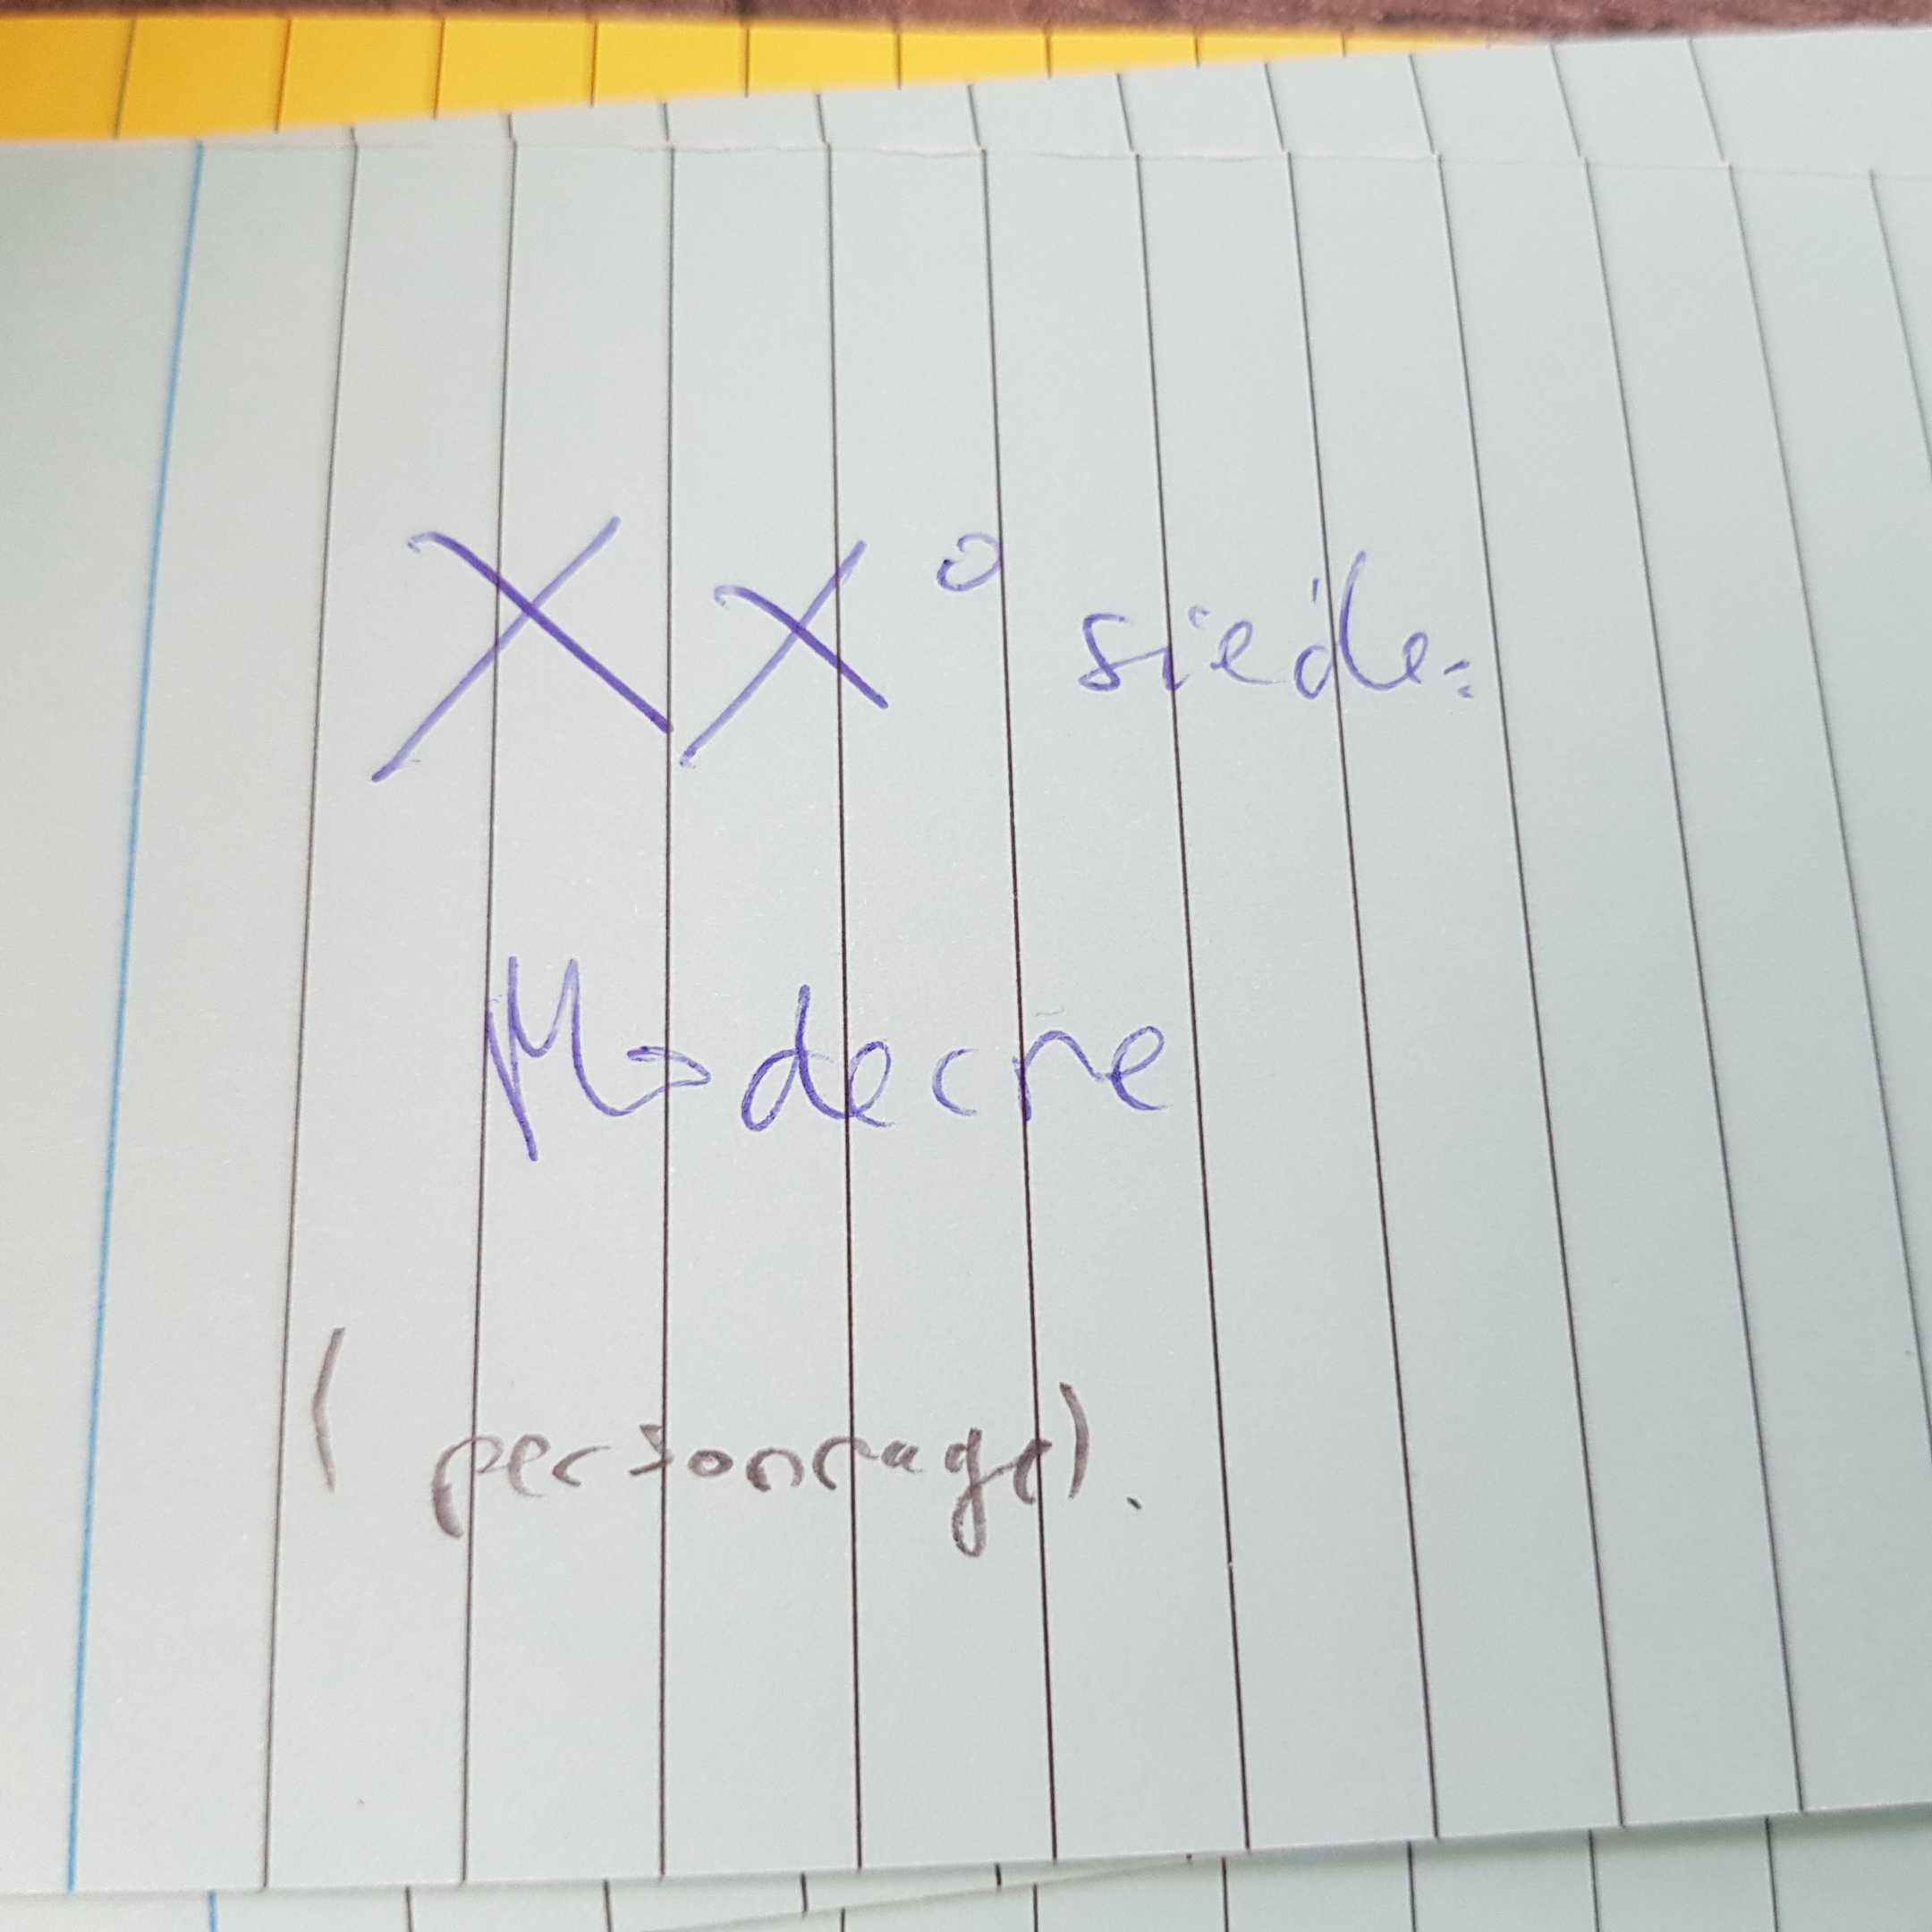 XX° siècle:
Moderne
(personnage).